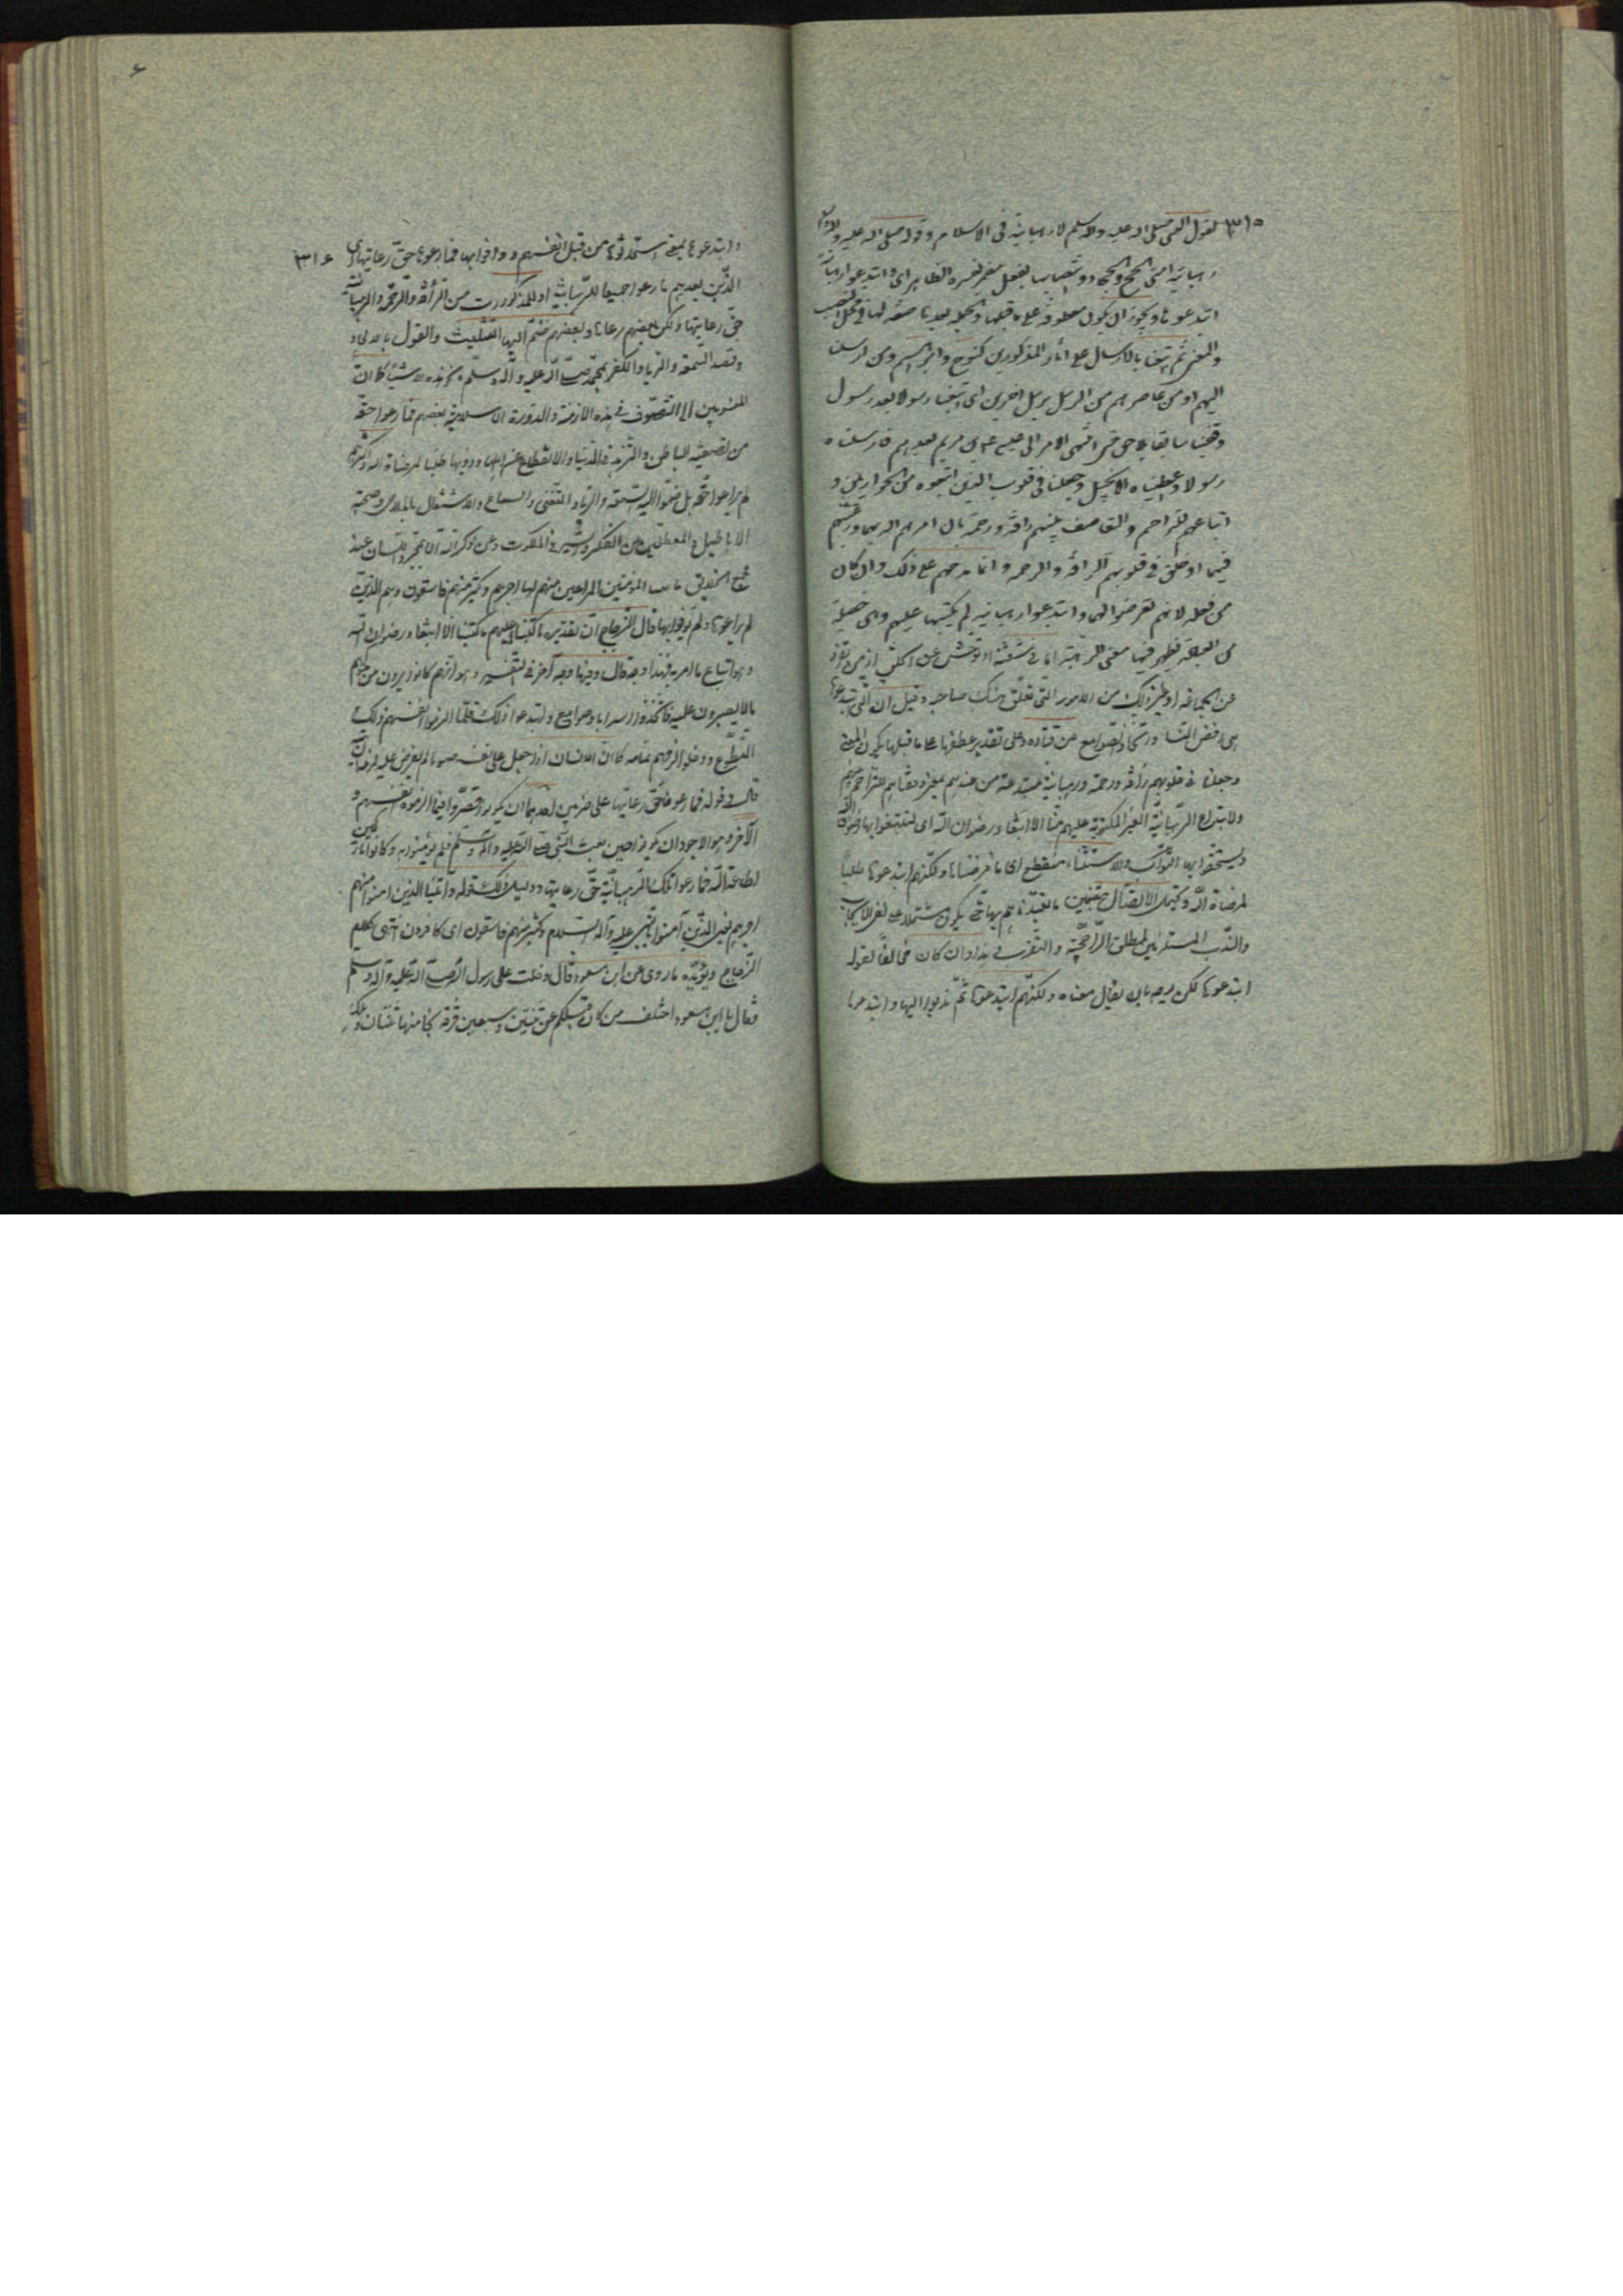 ٣١٥ لقول النبی صلی الله علیه وآله وسلم لا رهبانیة فی الاسلام و قوله صلی الله علیه وآله
رهبانیة امتی الحج والجهاد وانتصابها بفعل مضمر یفسره الظاهر ای وابتدعوا رهبانیة
ابتدعوها ویجوز ان یکون معطوفة علی ما قبلها والجملة بعدها صفة لها فی محل النصب
والمعنی ثم اتبعنا بالارسال علی آثار المذکورین کنوح وابراهیم ومن ارسلنا
الیهم او من عاصرهم من الرسل برسل اخرین ای اتبعنا رسولا بعد رسول
وقفینا سابقا بلاحق حتی انتهی الامر الی عیسی بن مریم بعدهم فارسلناه
رسولا واعطیناه الانجیل وجعلنا فی قلوب الذین اتبعوه من الحواریین و
اتباعهم التراحم والتعاطف بینهم رافة ورحمة بان امرهم الله بهما ورغبهم
فیهما او خلق فی قلوبهم الرافة والرحمة وانما مدحهم علی ذلک وان کان
من فعله لانهم تعرضوا لهما وابتدعوا رهبانیة لم یکتبها علیهم وهی خصلة
من العبادة یظهر فیها معنی الرهبة اما فی بنیة او توحش عن الخلق
عن الجماعة او غیر ذلک من الامور التی تعلق بنسک صاحبه وقیل ان التی ابتدعوها
هی رفض النساء واتخاذ الصوامع عن قتادة وعلی تقدیر عطفها علی ما قبلها یکون المعنی
وجعلنا فی قلوبهم رأفة ورحمة ورهبانیة مبتدعة من عندهم بمعنی وفقناهم للتراحم بینهم
ولابتداع الرهبانیة الغیر المکتوبة علیهم منا الا ابتغاء رضوان الله ای لیبتغوا بها رضوان الله
ویستحقوا بها الثواب والاستثناء منقطع ای ما فرضناها ولکنهم ابتدعوها طلبا
لمرضاة الله ویحتمل الاتصال بتضمین ما تعبدناهم بها حتی یکون مشتملا علی نفی الایجاب
والندب المستلزمین لمطلق الراجحیة والتقرب هذا وان کان مخالفا لقوله
ابتدعوها لکن یوجه بان یقال معناه ولکنهم ابتدعوها ثم ندبوا الیها وابتدعوها
۶
٣١۶ وابتدعوها بمعنی استحدثوها من قبل انفسهم واتوا بها فما رعوها حق رعایتها ای
الذین بعدهم ما رعوا جمیعا للرهبانیة او للمذکورات من الرأفة والرحمة والرهبانیة
حق رعایتها ولکن بعضهم رعاها وبعضهم ضم الیها التثلیث والقول بالاتحاد
وقصد السمعة والریاء والکفر بمحمد صلی الله علیه وآله وسلم ونحو هذه الاشیاء کما ان
المنسوبین الی التصوف فی هذه الازمنة والدورة الاسلامیة بعضهم فما رعوا حقه
من تصفیة الباطن والتزهد فی الدنیا والانقطاع عن اهلها ودونها طلبا لمرضاة الله واکثرهم
لم یراعوا حقه بل ضموا الیه السمعة والریاء والتغنی والسماع والاشتغال بالملاهی وصحبة
الاباطیل والمعطلین عن التفکر والسیر فی الملکوت وعن ذکر الله الا بمجرد اللسان عند
المؤمنین المراعین منهم لها اجرهم وکثیر منهم فاسقون وهم الذین
لم یراعوها ولم یوفوا بها قال الزجاج ان تقدیره ما کتبناها علیهم ما کتبنا الا ابتغاء رضوان الله
وهو اتباع ما امر به فهذا وجه قال وفیها وجه آخر فی التفسیر وهو انهم کانوا یرون من ملوکهم
ما لا یصبرون علیه فاتخذوا اسرابا وصوامع وابتدعوا ذلک فلما الزموا انفسهم ذلک
التطوع ودخلوا لزمهم تمامه کما ان الانسان اذا جعل علی نفسه صوما لم یفرض علیه لزمه ان یتمه
قال فی قوله فما رعوها حق رعایتها علی ضربین احدهما ان یکونوا قصروا فیما الزموه انفسهم و
الآخر وهو الاجود ان یکونوا حین بعث النبی صلی الله علیه وآله وسلم فلم یؤمنوا به وکانوا تارکین
لطاعة الله فما رعوا تلک الرهبانیة حق رعایتها ودلیل ذلک قوله وآتینا الذین امنوا منهم
اجرهم یعنی الذین آمنوا بالنبی علیه وآله السلام وکثیر منهم فاسقون ای کافرون انتهی کلام
الزجاج ویؤیده ما روی عن ابن مسعود قال دخلت علی رسول الله صلی الله علیه وآله وسلم
فقال یا ابن مسعود اختلف من کان قبلکم علی ثنتین وسبعین فرقة نجا منها ثنتان وهلک